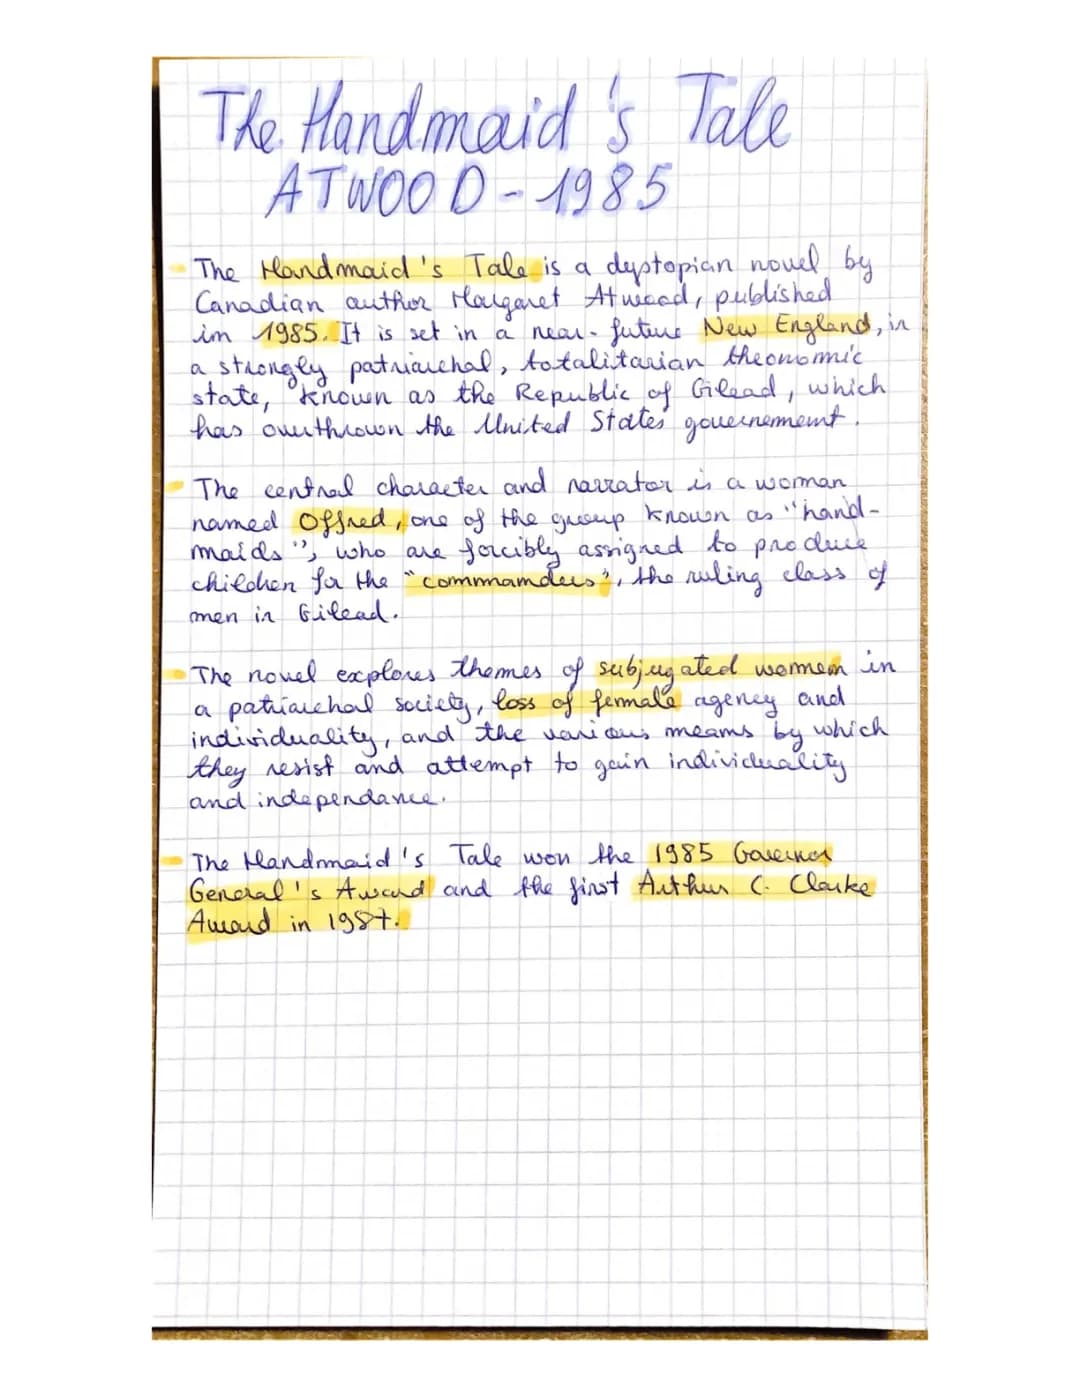 The Handmaid's Tale
ATWOOD - 1985
- The Handmaid's Tale is a dystopian novel by
Canadian author Margaret Atwood, published
in 1985. It is set in a near-future New England, in
a strongly patriarchal, totalitarian theonomic
state, known as the Republic of Gilead, which
has overthrown the United States governement.
- The central character and narrator is a woman
named Offred, one of the group known as "hand-
maids", who are forcibly assigned to produce
children for the "commanders", the ruling class of
men in Gilead.
- The novel explores themes of subjugated women in
a patriarchal society, loss of female agency and
individuality, and the various means by which
they resist and attempt to gain individuality
and independance.
- The Handmaid's Tale won the 1985 Governor
General's Award and the first Arthur C. Clarke
Award in 1987.